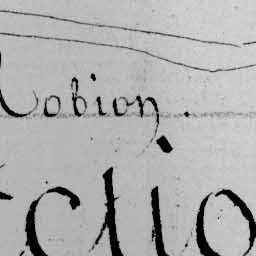 obion.
ctio